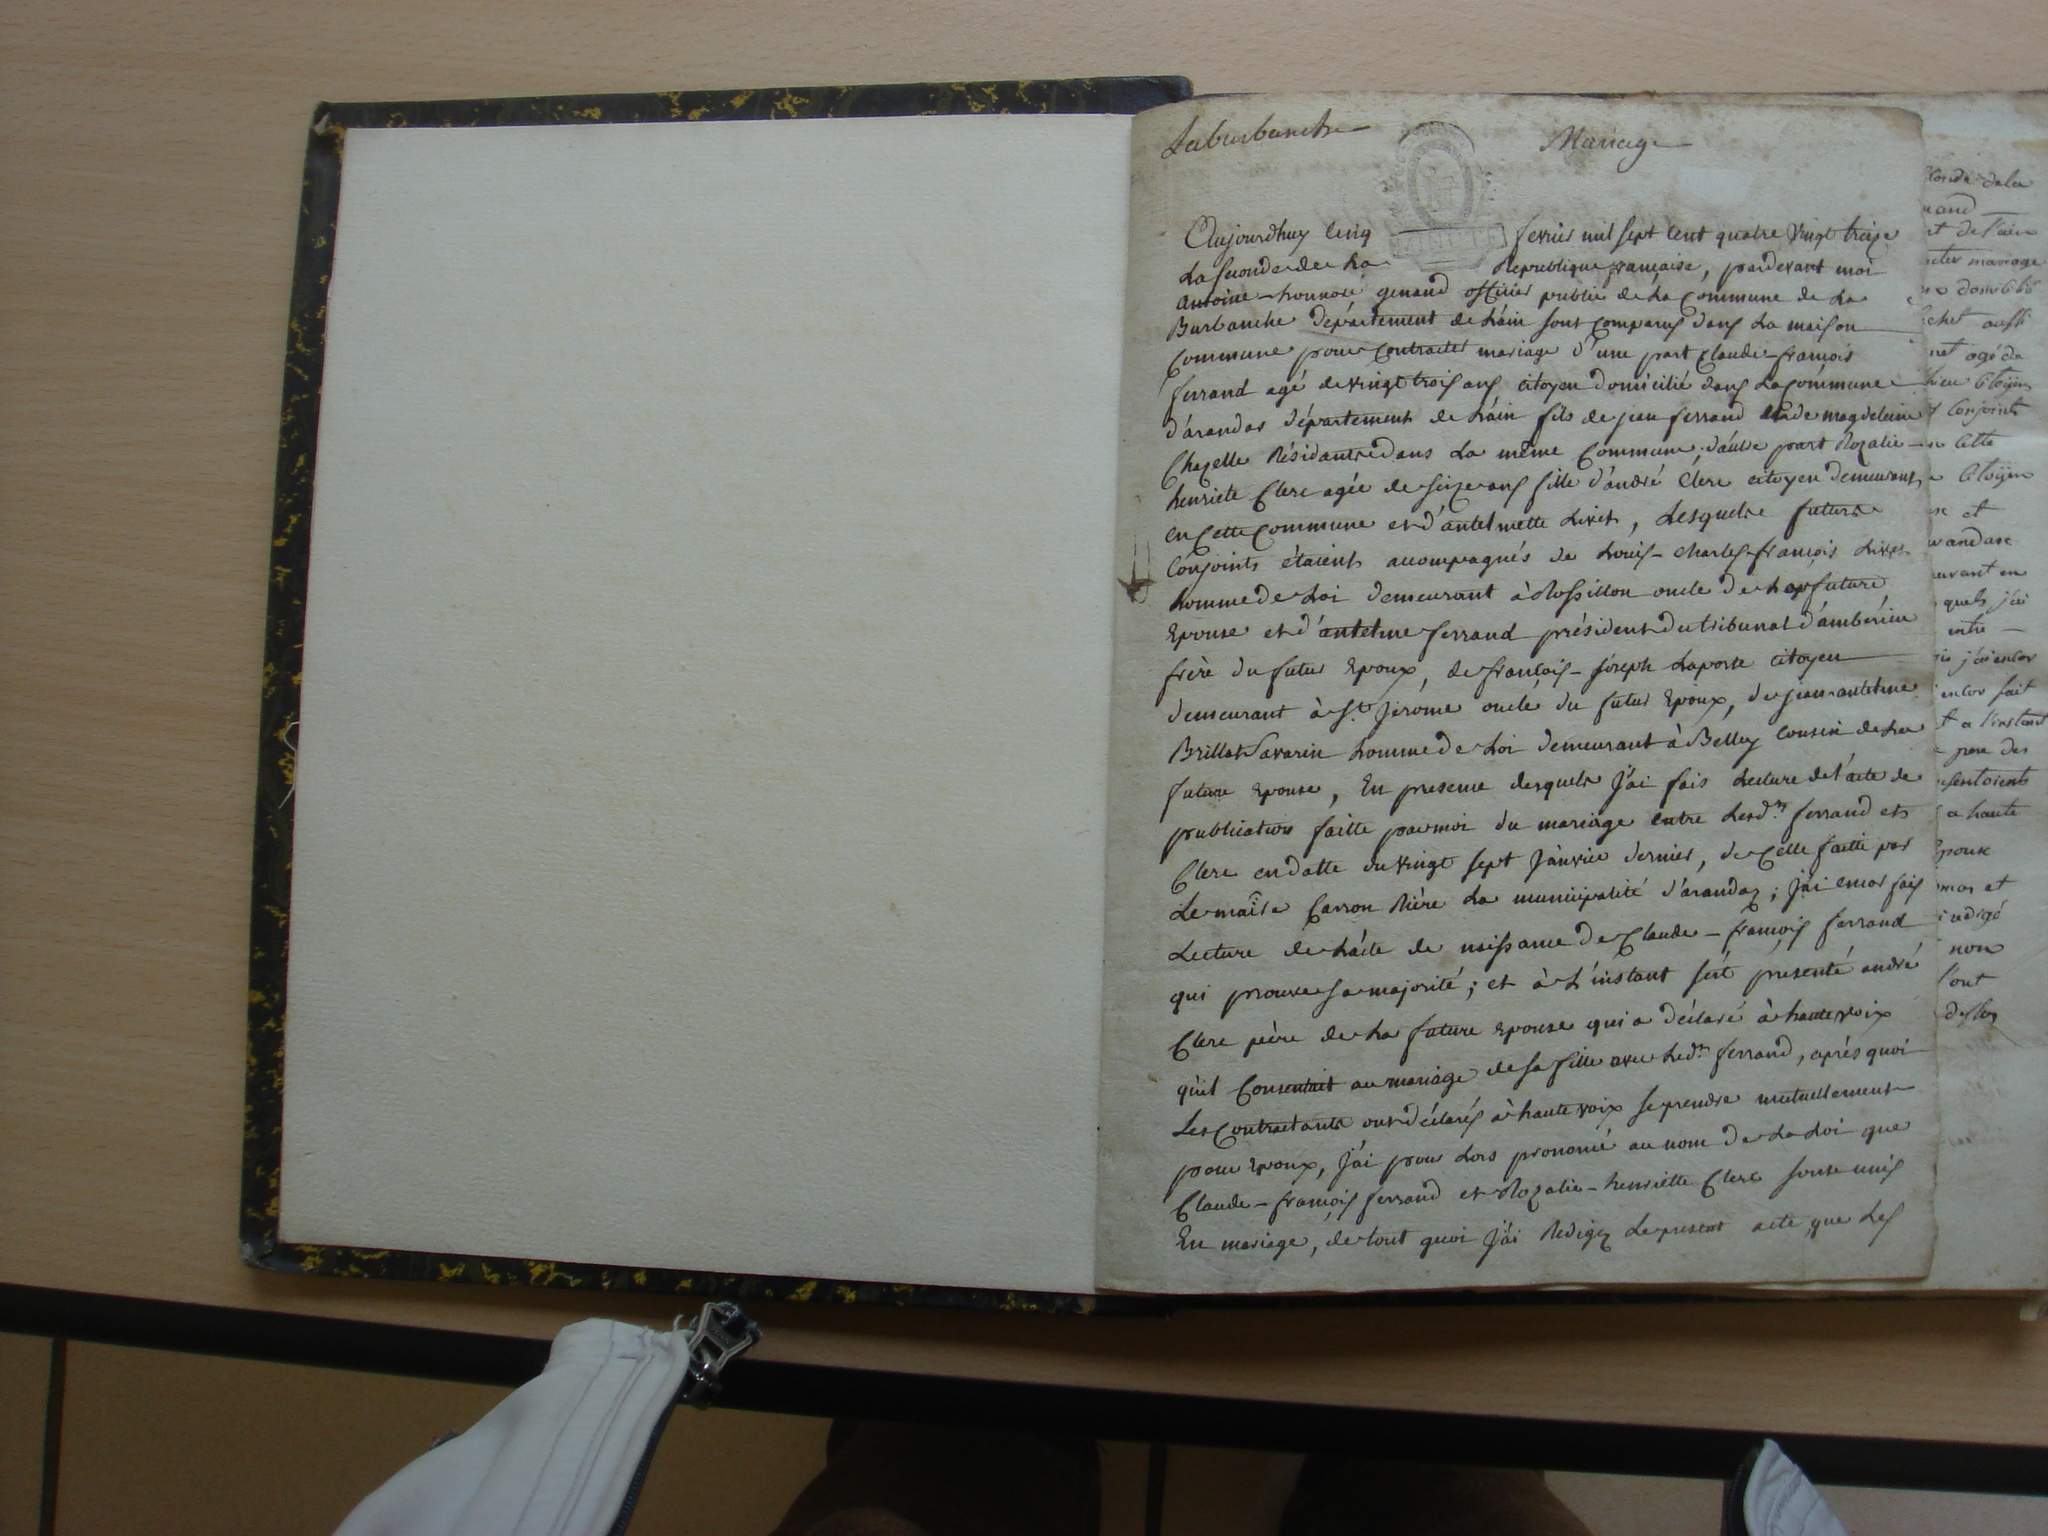 Laburbanche
Mariage
Aujourdhuy Cinq fevrier mil sept Cent quatre Vingt treize
La seconde de La Republique française, pardevant moi
Antoine-honnoré genand officier public de La Commune de La
Burbanche département de L'ain sont Comparus dans La maison
Commune pour Contracter mariage d'une part Claude-françois
ferrand agé de vingt trois ans citoyen domicilié dans La Commune
d'arandas département de L'ain fils de jean ferrand et de magdeleine
Chapelle Résidante dans La même Commune; d'autre part Rozalie-
henriete Clerc agée de seize ans fille d'andré Clerc citoyen demeurant
en Cette Commune et d'antelmette Livet, Lesquels futurs
Conjoints étaient accompagnés de Louis-Charles-françois Livet
homme de Loi demeurant à Rossillon oncle de La future
Epouse et d'antelme ferrand président du tribunal d'ambérieu
frère du futur Epoux, de françois-joseph Laporte citoyen
demeurant à St. Jérome oncle du futur Epoux, de jean antelme
Brillat Savarin homme de Loi demeurant à Belley cousin de La
future Epouse, En presence desquels J'ai fais Lecture de l'acte de
publication faitte par moi du mariage entre Lesd.ts ferrand et
Clerc en datte du vingt sept Janvier dernier, de Celle faitte par
Le maire Carron Rière La municipalité d'arandaz; j'ai encor fais
Lecture de L'acte de naissance de Claude-françois ferrand
qui prouve sa majorité; et à L'instant s'ést présenté andré
Clerc père de La future Epouse qui a déclaré à haute voix
qu'il Consentait au mariage de sa fille avec Led.t ferrand, après quoi
Les Contractants ont déclarés à haute voix se prendre mutuellement
pour Epoux, j'ai pour Lors prononcé au nom de La Loi que
Claude-françois ferrand et Rozalie-henriette Clerc sont unis
En mariage, de tout quoi J'ai Redigez Le present acte, que Les
de la
nand
nt de l'ain
mariage
domicilié
aussi
agé de
Citoyen
Conjoints
Cette
Citoyen
et
en
quels j'ai
entre
j'ai encor
encor fait
a l'instant
pere des
a haute
Epouse
et
redigé
non
l'ont